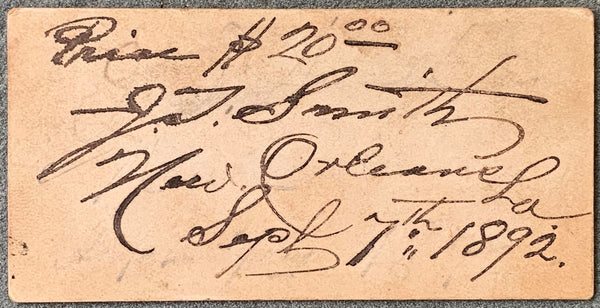 Price $20.00
J. T. Smith
New. Orleans La.
Sept 7th 1892.